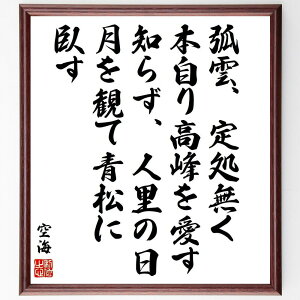 弧雲、定処無く
本自り高峰を愛す
知らず、人里の日
月を観て青松に
臥す
空海